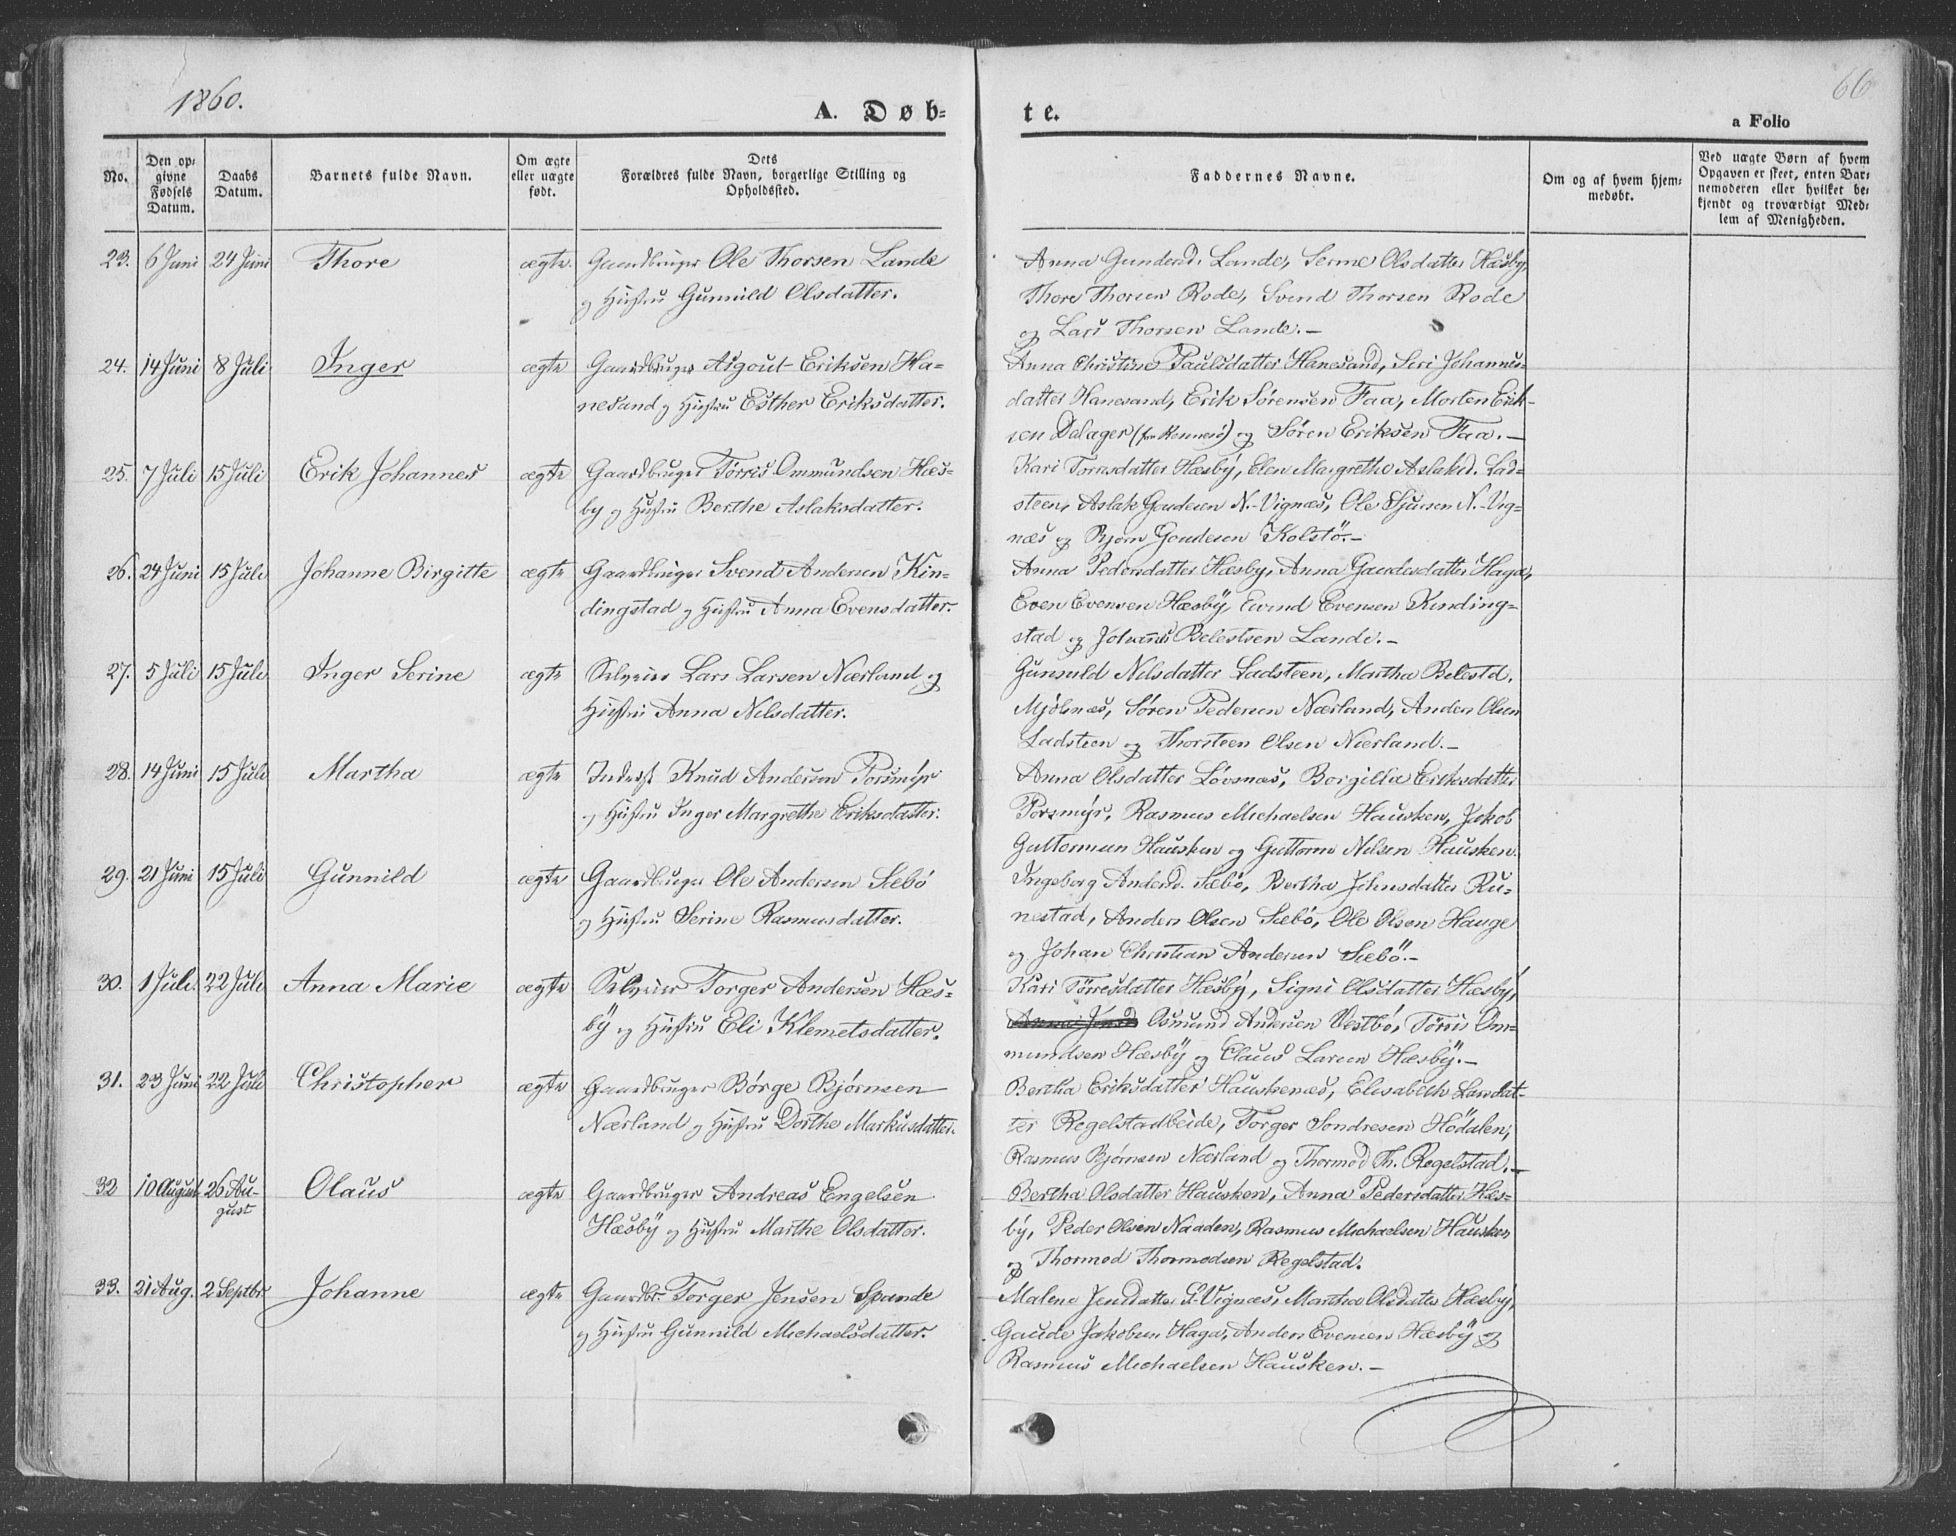 1860.
A. Døb-
te.
66
a Folio
No.
Den op-
givne
Fødsels
Datum.
Daabs
Datum.
Barnets fulde Navn.
Om ægte
eller uægte
født.
Dets
Forældres fulde Navn, borgerlige Stilling og
Opholdssted.
Faddernes Navne.
Om og af hvem hjem-
medøbt.
Ved uægte Børn af hvem
Opgaven er skeet, enten Bar-
nemoderen eller hvilket be-
kjendt og troværdigt Med-
lem af Menigheden.
23. 6 Juni 24 Juni Thore ægte Gaardbruger Ole Thorsen Lande
og Hustru Gunnild Olsdatter.
Anna Gunderd. Lande, Serine Olsdatter Hæsby,
Thore Thorsen Rode, Svend Thorsen Rode
og Lars Thorsen Lande.-
24. 14 Juni 8 Juli Inger ægte Gaardbruger Asgout Eriksen Ha-
nesand og Hustru Esther Eriksdatter.
Anna Christine Paulsdatter Hanesand, Siri Johannes-
datter Hanesand, Erik Sørensen Faa, Morten Erik-
sen Dalager (fra Rennesø) og Søren Eriksen Faa.-
25. 7 Juli 15 Juli Erik Johannes ægte Gaardbruger Tørris Ommundsen Hæs-
by og Hustru Berthe Aslaksdatter.
Kari Torrisdatter Hæsby, Elen Margrethe Aslakd. Lad-
steen, Aslak Goudesen N.-Vignæs, Ole Sjursen N.-Vig-
næs og Bjørn Goudesen Kolstö.-
26. 24 Juni 15 Juli Johanne Birgitte ægte Gaardbruger Svend Andersen Kin-
dingstad og Hustru Anna Evensdatter.
Anna Pedersdatter Hæsby, Anna Gaudesdatter Haga,
Even Evensen Hæsby, Eivind Evensen Kinding-
stad og Johannes Belestsen Lande.-
27. 5 Juli 15 Juli Inger Serine ægte Selveier Lars Larsen Nærland og
Hustru Anna Nilsdatter.
Gunnuld Nilsdatter Ladsteen, Martha Belestd.
Mjölsnæs, Søren Pedersen Nærland, Anders Olsen
Ladsteen og Thorsteen Olsen Nærland.-
28. 14 Juni 15 Juli Martha ægte Inderst Knud Andersen Porsmyr
og Hustru Inger Margrethe Eriksdatter.
Anna Olsdatter Lövsnæs, Borgilla Eriksdatter
Porsmyr, Rasmus Michaelsen Hausken, Jakob
Guttormsen Hausken og Guttorm Nilsen Hausken.
29. 21 Juni 15 Juli Gunnild ægte Gaardbruger Ole Andersen Sæbö
og Hustru Serine Rasmusdatter.
Ingeborg Anderd. Sæbö, Bertha Johnsdatter Ru-
nestad, Anders Olsen Sæbö, Ole Olsen Hauge
og Johan Christian Andersen Sæbö.-
30. 1 Juli 22 Juli Anna Marie ægte Selveier Torger Andersen Hæs-
by og Hustru Eli Klemetsdatter.
Kari Tørresdatter Hæsby, Signi Olsdatter Hæsby,
Osmund Andersen Vestbö, Törris Om-
mundsen Hæsby og Claus Larsen Hæsby.-
31. 23 Juni 22 Juli Christopher ægte Gaardbruger Børge Bjørnsen
Nærland og Hustru Dorthe Markusdatter.
Bertha Eriksdatter Hauskenæs, Elisabeth Larsdat-
ter Regelstad beide, Torger Sondresen Hödalen,
Rasmus Bjørnsen Nærland og Thormod Th. Regelstad.-
32 10 August 26 Au-
gust Olaus ægte Gaardbruger Andreas Engelsen
Hæsby og Hustru Marthe Olsdatter.
Bertha Olsdatter Hausken, Anna Pedersdatter Hæs-
by, Peder Olsen Naaden, Rasmus Michaelsen Hausken
og Thormod Thormodsen Regelstad.
33. 21 Aug. 2 Septbr Johanne ægte Gaardbr. Torger Jensen Spande
og Hustru Gunnild Michaelsdatter.
Malene Jensdatter S. Vignæs, Martha Olsdatter Hæsby,
Gaude Jakobsen Haga, Anders Evensen Hæsby og
Rasmus Michaelsen Hausken.-